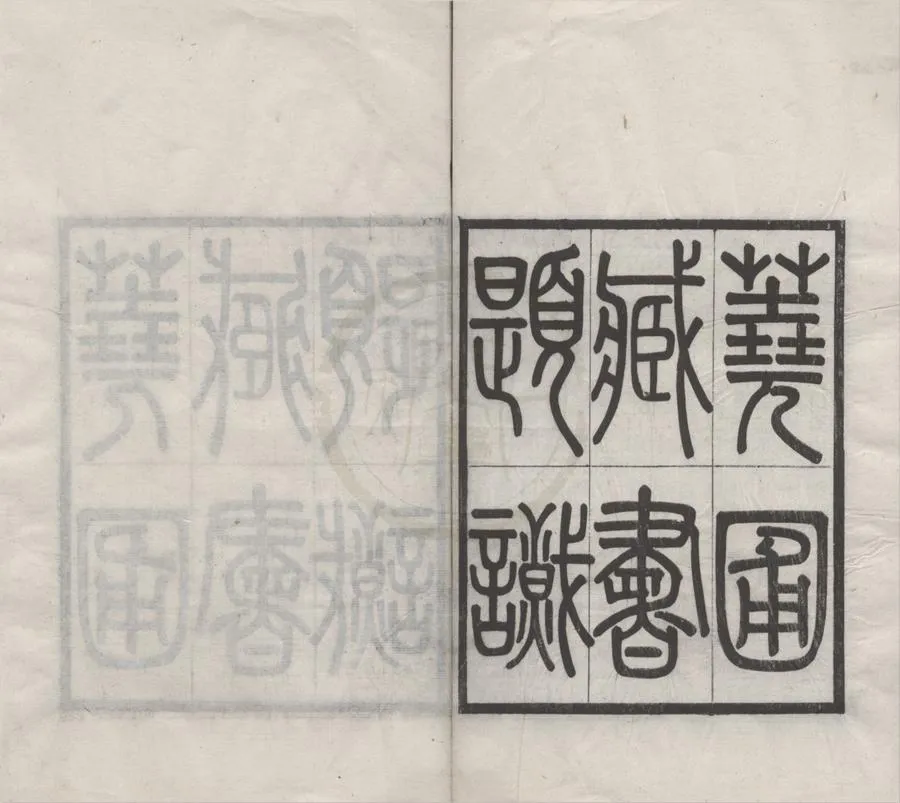 蕘圃
臧書
題識